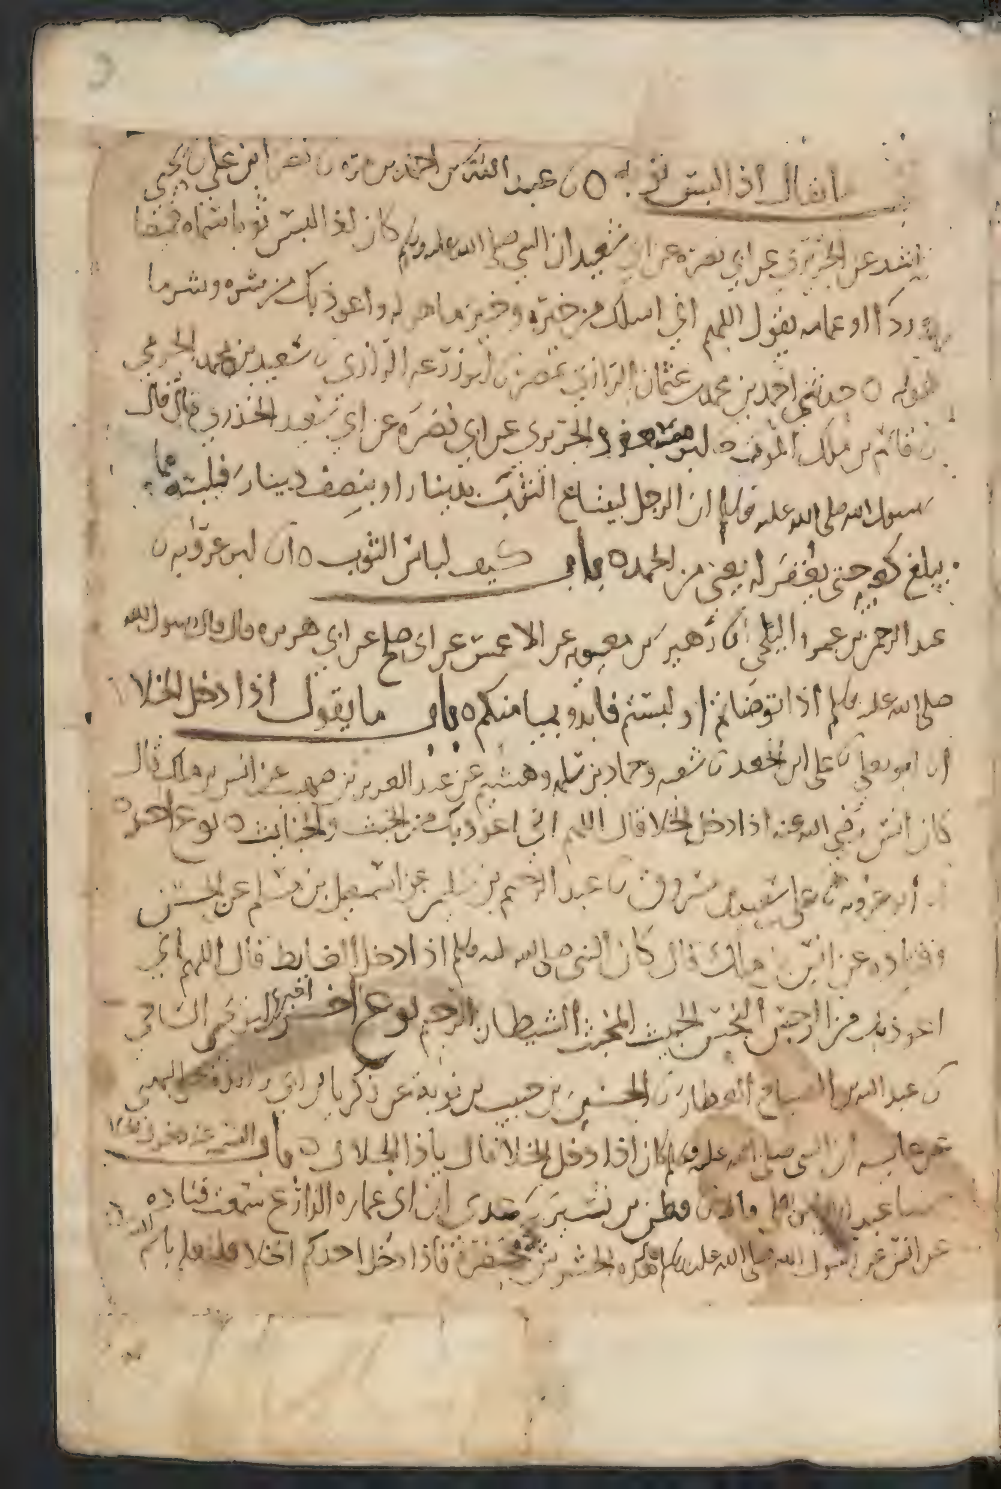 ما يقال اذا لبس ثوبه ٥ عبد الله بن احمد بن مره ن نصر ابن علي ن يحيى
راشد عن الجريري عن ابي نضره عن ابي سعيد ان النبي صلى الله عليه وسلم كان اذا لبس ثوبا سماه قميصا
رداا او عمامه يقول اللهم اني اسلك من خيره وخير ما هو له واعوذ بك من شره وشر ما
هو له ٥ حدثني احمد بن محمد عثمان الرازي بمصر ن ابو زرعه الرازي ن سعيد بن محمد الجرمي
ن قاسم بن ملك المزني الجريري عن ابي نضره عن ابي سعيد الخدري قال قال
رسول الله صلى الله عليه وسلم ان الرجل ليبتاع الثوب بدينار او بنصف دينار فيلبسه فما
يبلغ كعبيه حتى يغفر له يعني من الحمد ٥ باب كيف لباس الثوب ٥ ان ابو عروبه ن
عبد الرحمن بن عمرو البجلي ن زهير بن معويه عن الاعمش عن ابي صلح عن ابي هريره قال قال رسول الله
صلى الله عليه وسلم اذا توضاتم او لبستم فابدو بميامنكم ٥ باب ما يقول اذا دخل الخلا
ان ابو يعلى ن علي ابن الجعد ن شعبه وحماد بن سلمه وهشيم عن عبد العزيز بن صهيب عن انس بن ملك قال
كان انس رضي الله عنه اذا دخل الخلا قال اللهم اني اعوذ بك من الخبث والخبايث ٥ نوع اخر ٥
ان ابو عروبه ن علي سعيد بن مسروق ن عبد الرحيم بن سليمن عن اسمعيل بن مسلم عن الحسن
وقتاده عن انس بن ملك قال كان النبي صلى الله عليه وسلم اذا دخل الغايط قال اللهم اني
اعوذ بك من الرجس النجس الخبيث المخبث الشيطان الرجيم نوع اخر اخبرني ابن يحيى الساجي
ن عبد الله بن الصباح العطار ن الحسن بن حبيب بن ندبة عن زكريا بن ابي زايده
عن عايشه ان النبي صلى الله عليه وسلم كان اذا دخل الخلا قال ياذا الجلال ٥ باب التسميه عند دخول الخلا
قطن بن نسير ن عدي ابن ابي عماره الذارع سمعت قتاده
عن انس عن رسول الله صلى الله عليه وسلم هذه الحشوش محتضرة فاذا دخل احدكم الخلا فليقل باسم الله